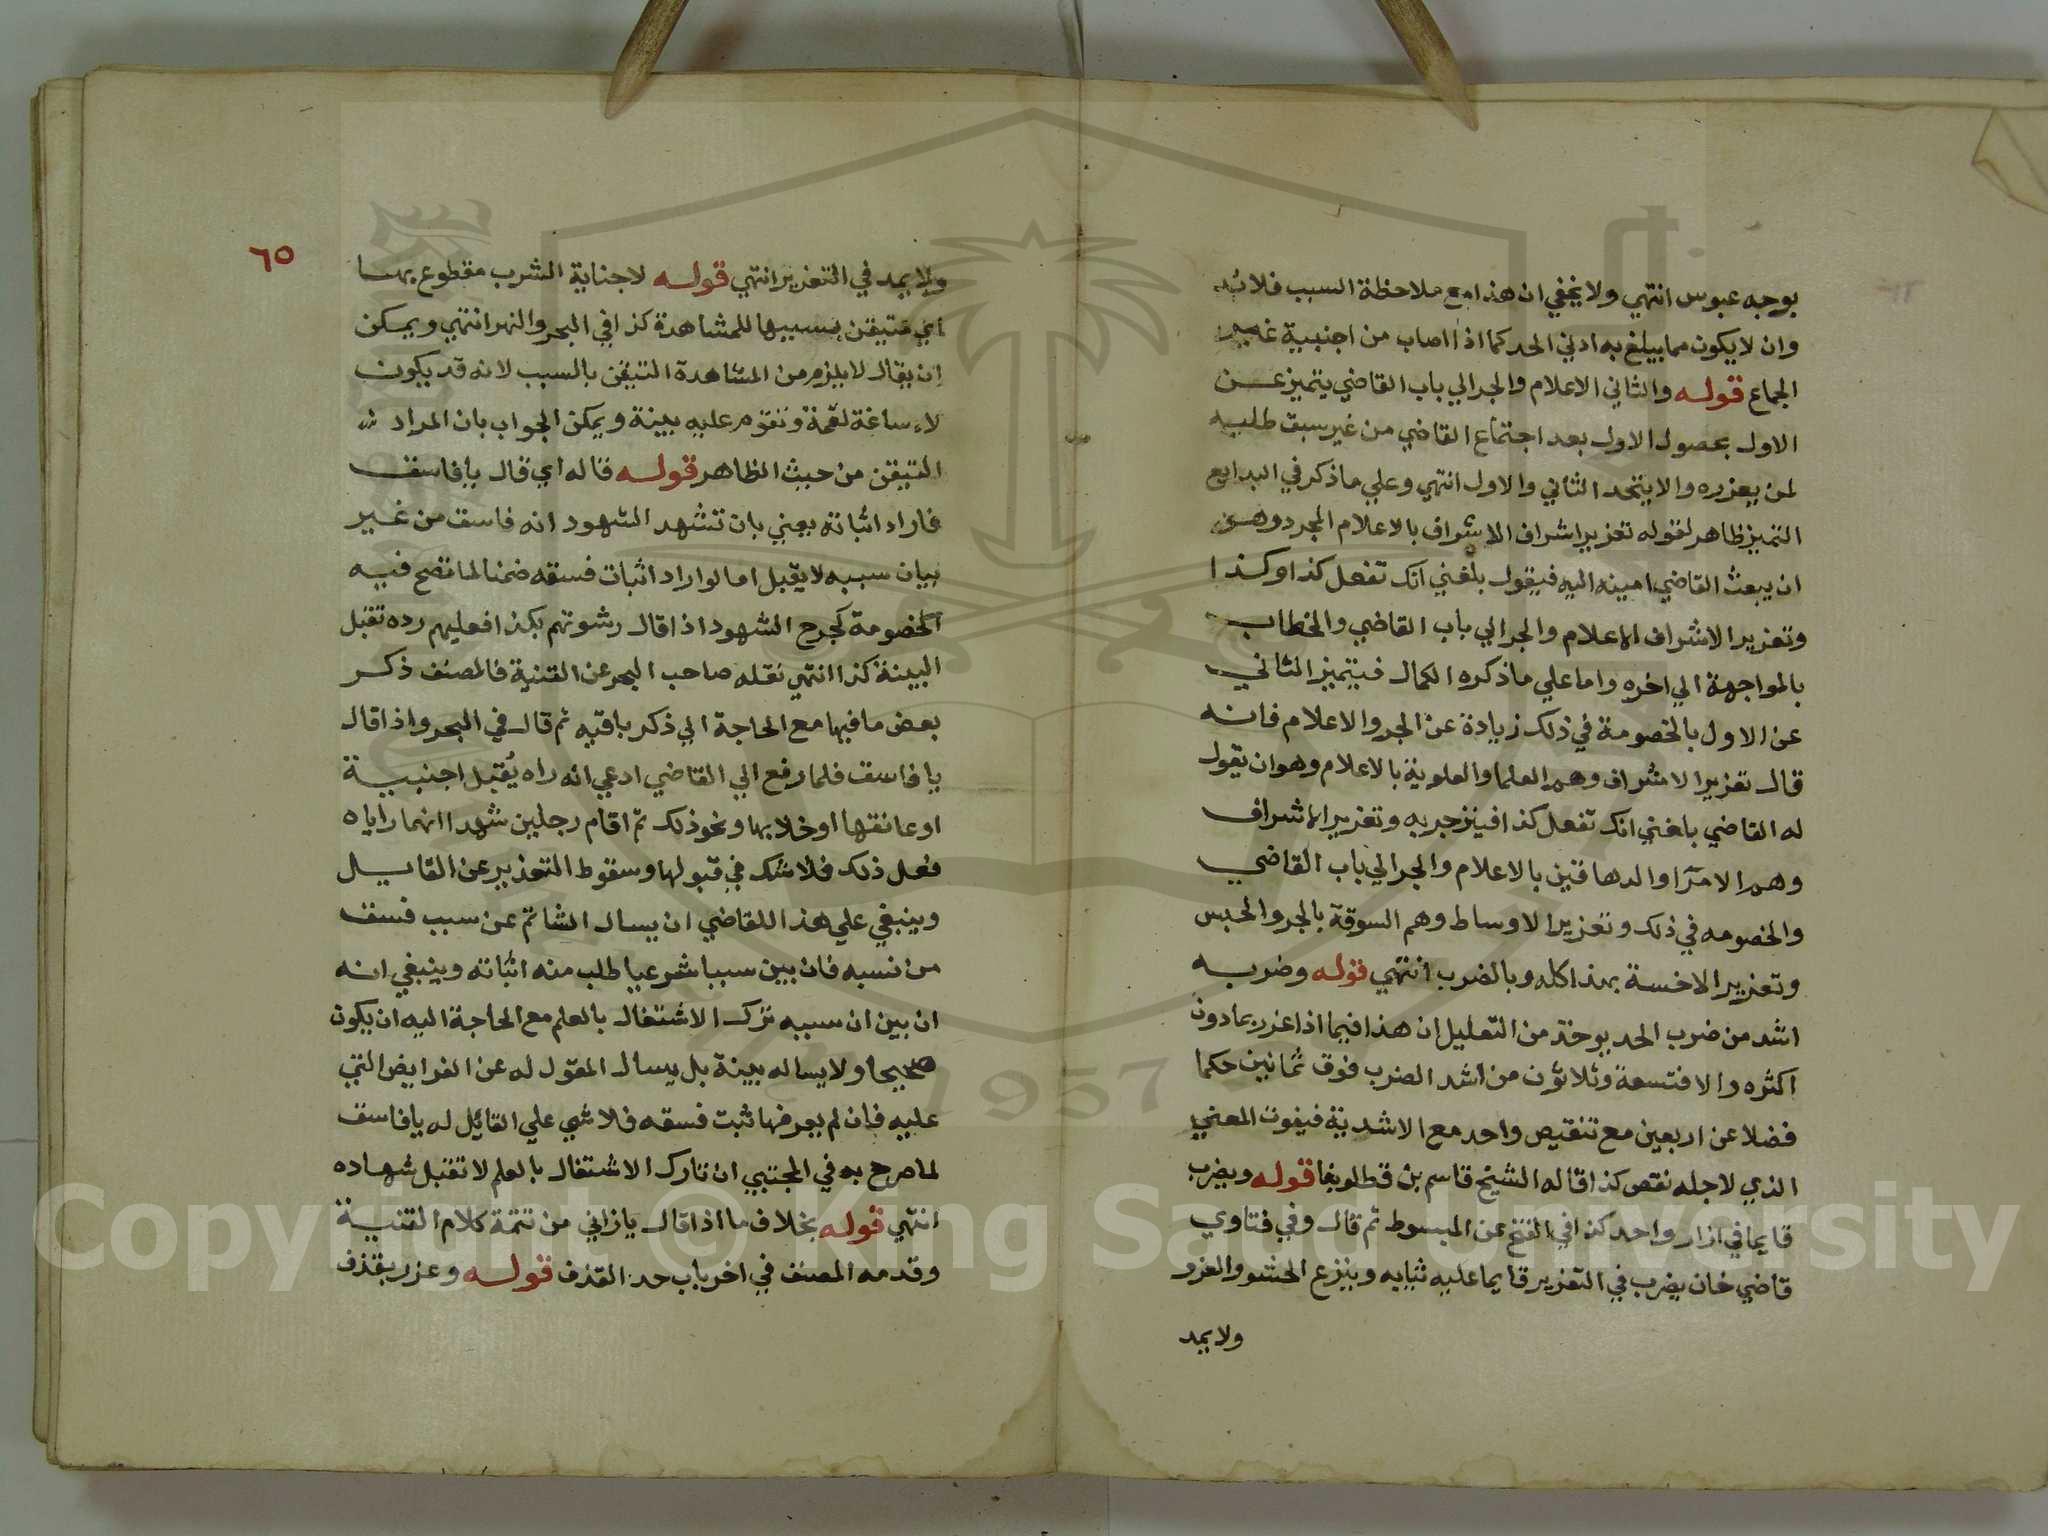 بوجه عبوس انتهي ولا يخفي ان هذا مع ملاحظة السبب فلا بد
وان لا يكون مما يبلغ به ادني الحد كما اذا اصاب من اجنبية غير
الجماع قوله والثاني الاعلام والجر الي باب القاضي يتميز عن
الاول بحصول الاول بعد اجتماع القاضي من غير سبق طلبه
لمن يعزره والا يتحد الثاني والاول انتهي وعلي ما ذكر في البدايع
التميز ظاهر لقوله تعزير اشراف الاشراف بالاعلام المجرد وهو
ان يبعث القاضي امينه اليه فيقول بلغني انك تفعل كذا وكذا
وتعزير الاشراف الاعلام والجر الي باب القاضي والخطاب
بالمواجهة الي اخره واما علي ما ذكره الكمال فيتميز الثاني
عن الاول بالخصومة في ذلك زيادة عن الجر والاعلام فانه
قال تعزير الاشراف وهم العلما والعلوية بالاعلام وهو ان يقول
له القاضي بلغني انك تفعل كذا فينزجر به وتعزير الاشراف
وهم الامرآ والدهاقين بالاعلام والجر الي باب القاضي
والخصومه في ذلك وتعزير الاوساط وهم السوقة بالجر والحبس
وتعزير الاخسة بهذا كله وبالضرب انتهي قوله وضربه
اشد من ضرب الحد يوخذ من التعليل ان هذا فيما اذا عزر بما دون
اكثره والا فتسعة وثلاثون من اشد الضرب فوق ثمانين حكما
فضلا عن اربعين مع تنقيص واحد مع الاشدية فيفوت المعني
الذي لاجله نقص كذا قاله الشيخ قاسم بن قطلوبغا قوله ويضرب
قايما في ازار واحد كذا في الفتح عن المبسوط ثم قال وفي فتاوي
قاضي خان يضرب في التعزير قايما عليه ثيابه وينزع الحشو والفرو
ولا يمد
٦٥
ولا يمد في التعزير انتهي قوله لا جناية الشرب مقطوع بها
اي متيقن بسببها للمشاهدة كذا في البحر والنهر انتهي ويمكن
ان يقال لا يلزم من المشاهدة التيقن بالسبب لانه قد يكون
لاساغة لقمة وتقوم عليه بينة ويمكن الجواب بان المراد
التيقن من حيث الظاهر قوله قاله اي قال يا فاسق
فاراد اثباته يعني بان تشهد الشهود انه فاسق من غير
بيان سببه لا يقبل اما لو اراد اثبات فسقه ضمنا لما تصح فيه
الخصومة كجرح الشهود اذا قال رشوتهم بكذا فعليهم رده تقبل
البينة كذا انتهي نقله صاحب البحر عن القنية فالمصنف ذكر
بعض ما فيها مع الحاجة الي ذكر باقيه ثم قال في البحر واذا قال
يا فاسق فلما رفع الي القاضي ادعي انه راه يُقبل اجنبية
او عانقها او خلا بها ونحو ذلك ثم اقام رجلين شهدا انهما راياه
فعل ذلك فلا شك في قبولها وسقوط التعزير عن القايل
وينبغي علي هذا للقاضي ان يسال الشاتم عن سبب فسق
من نسبه فان بين سببا شرعيا طلب منه اثباته وينبغي انه
ان بين ان سببه ترك الاشتغال بالعلم مع الحاجة اليه ان يكون
صحيحا ولا يساله بينة بل يسال المقول له عن الفرايض التي
عليه فان لم يعرفها ثبت فسقه فلا شي علي القائل له يا فاسق
لما صرح به في المجتبي ان تارك الاشتغال بالعلم لا تقبل شهاده
انتهي قوله بخلاف ما اذا قال يا زاني من تتمة كلام القنية
وقدمه المصنف في اخر باب حد القذف قوله وعزر بقذف
1957
Copyright © King Saud University